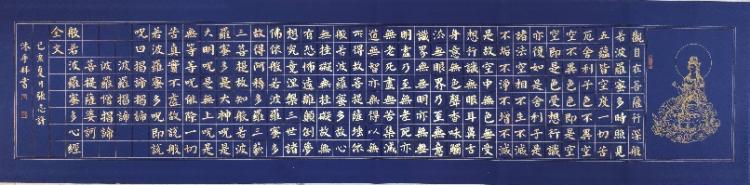 觀自在菩薩行深般
若波羅蜜多時照見
五蘊皆空度一切苦
厄舍利子色不異空
空不異色色即是空
空即是色受想行識
亦復如是舍利子是
諸法空相不生不滅
不垢不淨不增不減
是故空中無色無受
想行識無眼耳鼻舌
身意無色聲香味觸
法無眼界乃至無意
識界無無明亦無無
明盡乃至無老死亦
無老死盡無苦集滅
道無智亦無得以無
所得故菩提薩埵依
般若波羅蜜多故心
無罣礙無罣礙故無
有恐怖遠離顛倒夢
想究竟涅槃三世諸
佛依般若波羅蜜多
故得阿耨多羅三藐
三菩提故知般若波
羅蜜多是大神呪是
大明呪是無上呪是
無等等呪能除一切
苦真實不虛故說般
若波羅蜜多呪即說
呪曰揭諦揭諦
波羅揭諦
波羅僧揭諦
菩提薩婆訶
般若波羅蜜多心經
全文
己亥夏月張志許
沐手拜書